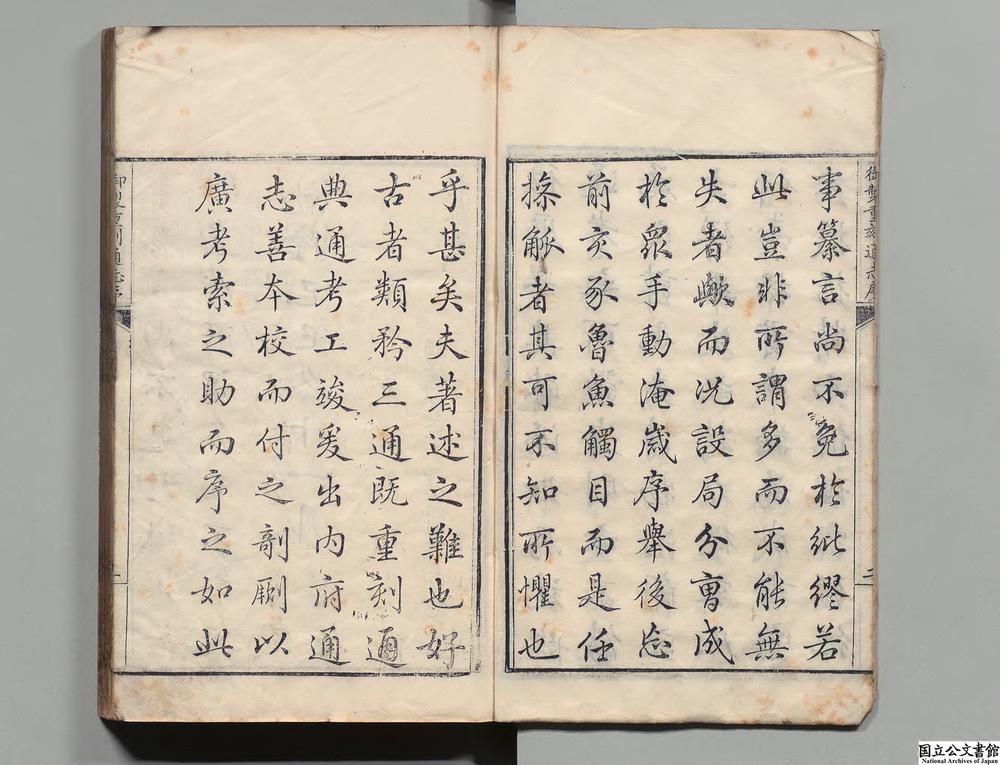 御製重刻通志序
事纂言尚不免於紕繆若
此豈非所謂多而不能無
失者歟而况設局分曹成
於眾手動淹歲序舉後忘
前亥豕魯魚觸目而是任
操觚者其可不知所懼也
乎甚矣夫著述之難也好
古者類矜三通既重刻通
典通考工竣爰出內府通
志善本校而付之剞劂以
廣考索之助而序之如此
国立公文書館
National Archives of Japan